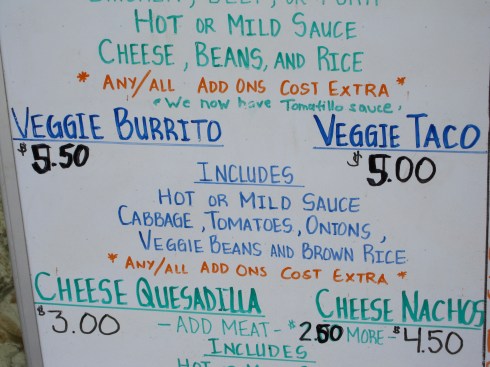 HOT OR MILD SAUCE
CHEESE, BEANS, AND RICE
* ANY/ALL ADD ONS COST EXTRA *
* We now have Tomatillo sauce.
VEGGIE BURRITO VEGGIE TACO
$5.50 $5.00
INCLUDES
HOT OR MILD SAUCE
CABBAGE, TOMATOES, ONIONS,
VEGGIE BEANS AND BROWN RICE
* ANY/ALL ADD ONS COST EXTRA *
CHEESE QUESADILLA CHEESE NACHOS
$3.00 -ADD MEAT- $2.50 MORE- $4.50
INCLUDES
HOT OR